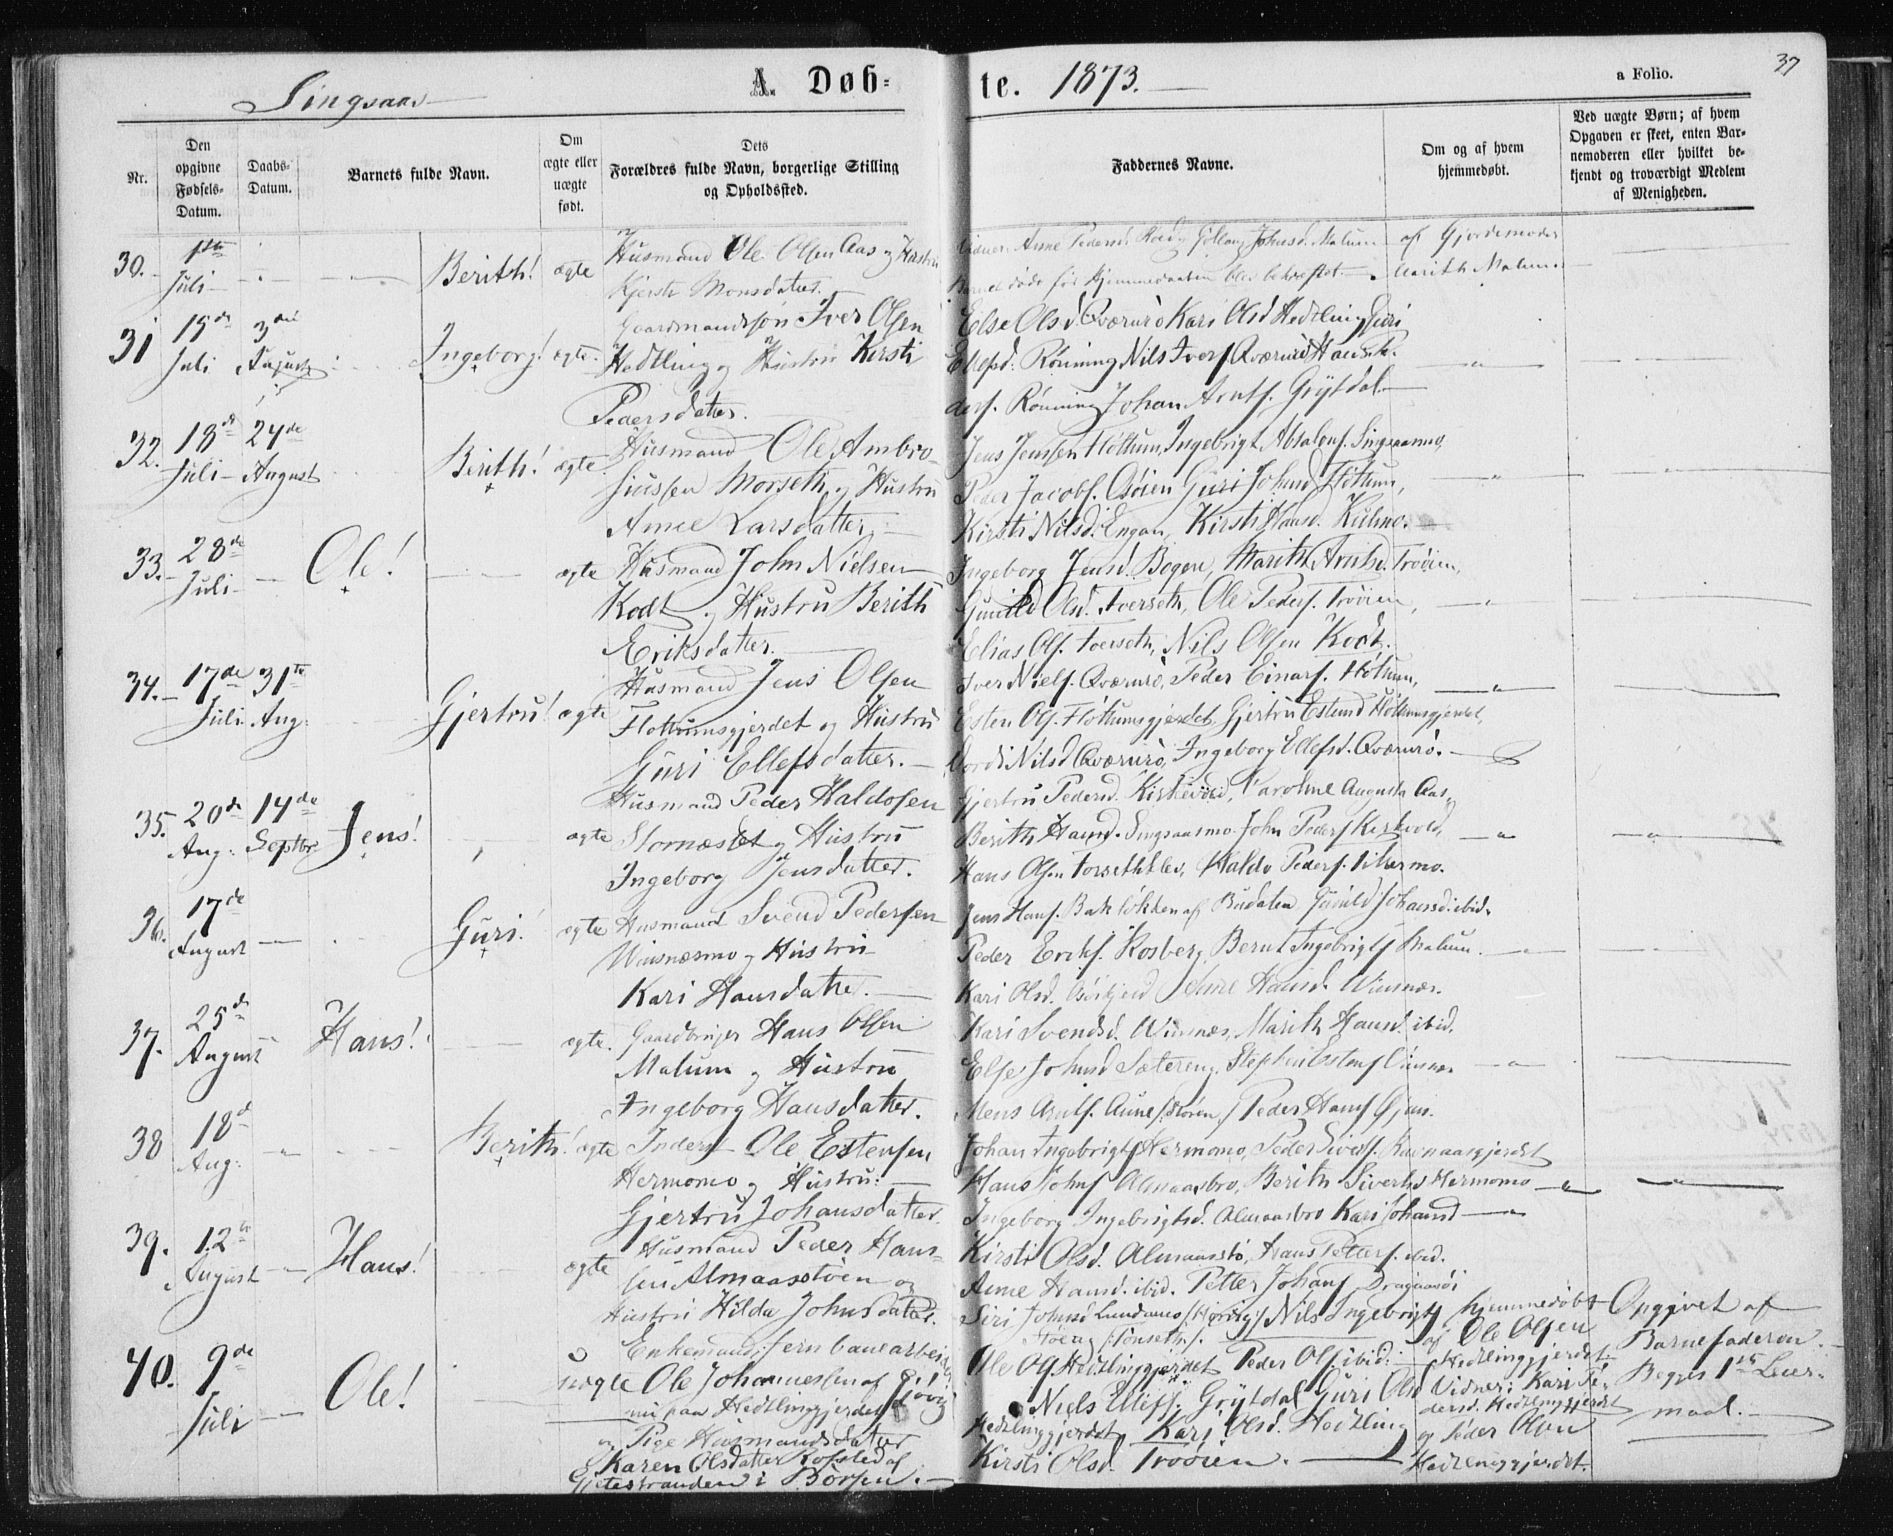 Singsaas
A. Døb-
te. 1873.
a Folio. 37
Nr.
Den opgivne Fødsels-Datum.
Daabs-Datum.
Barnets fulde Navn.
Om ægte eller uægte født.
Dets Forældres fulde Navn, borgerlige Stilling og Opholdssted.
Faddernes Navne.
Om og af hvem hjemmedøbt.
Ved uægte Børn; af hvem Opgaven er skeet, enten Barnemoderen eller hvilket bekjendt og troværdigt Medlem af Menigheden.
30. 1ste Juli Berith! ægte
Husmand Ole Olsen Aas og Hustru
Kjersti Monsdatter.
Anne Pedersd. Johnsd. Malum
døde før Hjemmedaaben blev bekræftet
af Gjordemoder
Marith Malum
31 15de Juli 3die August Ingeborg! ægte.
Gaardmandssøn Iver Olsen
Hedtling og Hustru Kirsti
Pedersdatter.
Else Olsd. Qværnrø Kari Olsd Hedtling Guri
Ellefsd: Rønning Nils Ivers. Qværnrø
Rønning Johan Arnts. Grytdal
32. 18de Juli 24de August Berith! ægte
Husmand Ole Ambro-
siussen Morseth og Hustru
Anne Larsdatter
Jens Jenssen Flottum, Ingebrigt Absalons. Singsaasmo,
Peder Jacobs. Asøien Guri Johnsd Flottum,
Kirsti Nilsd. Engan, Kirsti Hansd. Kulmo.
33. 28de Juli Ole! ægte
Husmand John Nielsen
Kodt og Hustru Berith
Eriksdatter.
Ingeborg Jensd. Bogen, Marith Arntsd. Trøien,
Gunild Olsd. Forseth, Ole Peders. Trøien,
Elias Ols. Forseth, Nils Olsen Kodt.
34. 17de Juli 31te Aug: Gjertru! ægte
Husmand Jens Olsen
Flottumsgjerdet og Hustru
Guri Ellefsdatter.
Iver Niels. Qværnrø, Peder Einars. Flottum,
Esten Ols. Flottumsgjerdet, Gjertru Estensd Flottumsgjerdet,
Dordi Nilsd Qværnrø, Ingeborg Ellefsd. Qværnrø.
35. 20de Aug: 14de Septbr Jens! ægte
Husmand Peder Haldosen
Stornæslet og Hustru
Ingeborg Jensdatter.
Gjertru Pedersd. Kirkevold, Caroline Augusta Aas,
Berith Hansd. Singsaasmo. John Peders Kirkvold,
Hans Olsen Forsethslev, Haldo Peders.
36. 17de August Guri! ægte
Husmand Svend Pedersen
Winsnæsmo og Hustru
Kari Hansdatter.
Jens Hans. Bakløkken af Budalen Gunild Johansd ibid.
Peder Eriks. Rosberg, Bernt Ingebrigts Malum.
Kari Olsd. Anne Hansd. Winsnæs.
37. 25de August Hans! ægte.
Gaardbruger Hans Olsen
Malum og Hustru
Ingeborg Hansdatter.
Kari Svendsd. Winsnæs, Marith Hansd. ibid.
Else Johnsd Sætereng. Stephen Estens Winsnæs
Mons Arnts. Aune /:Støren:/ Peder Hans
38 18de Aug: Berith! ægte
Inderst Ole Estensen
Hermomo og Hustru:
Gjertru Johansdatter.
Johan Ingebrigts Hermomo, Peder Siverts. Ravnaasgjerdet
Hans Johns Almaasbro, Berith Sivertsd Hermomo
Ingeborg Ingebrigtsd. Almaasbro Kari Johansd
39. 12te August Hans! ægte
Husmand Peder Han-
sen Almaasstøen og
Hustru Hilda Johnsdatter.
Kirsti Olsd. Almaasstø, Hans Petters. ibid.
Anne Hansd. ibid. Petter Johans Dragaasøi
Siri Johnsd Lundamo /:Horrig:/ Nils Ingebrigts
Støeng /:Sønseth:/.
40. 9de Juli Ole! uægte
Enkemand, Jernbanearbeider
Ole Johannessen af
nu paa Hedtlinggjerdet
og Pige Husmandsdatter
Karen Olsdatter Rofsted af
Gjetestranden i Børsen.
Ole Ols Hedtlinggjerdet Peder Ols. ibid.
Niels Ellefs. Grytdal Guri Olsd
Hedtlinggjerdet, Kari Olsd. Hedtling
Kirsti Olsd. Trøøien.
hjemmedøbt
af Ole Olsen
Hedtlinggjerdet
Vidner: Kari Pe-
dersd. Hedtlinggjerdet
og Peder Olsen
Hedtlinggjerdet.
Opgivet af
Barnefaderen.
Begges 1ste Leier-
maal.